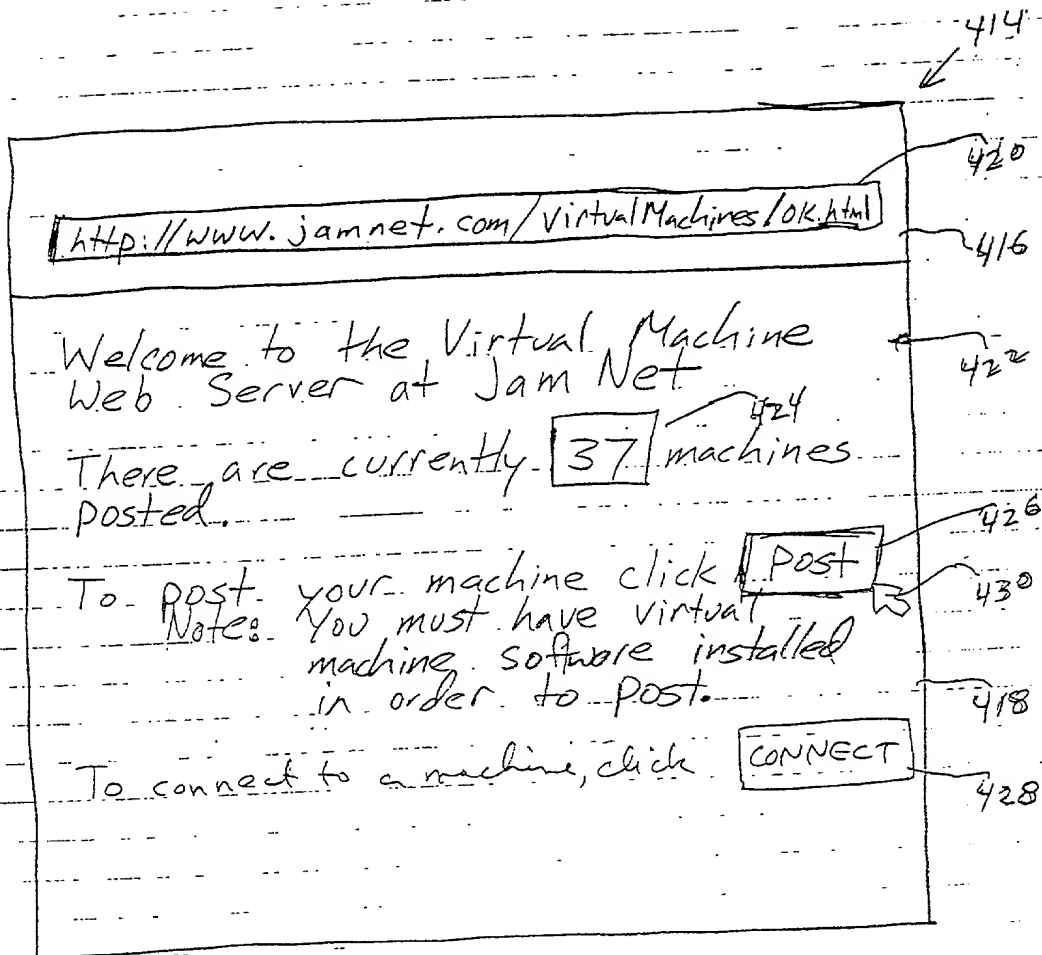 414
420
http://www.jamnet.com/VirtualMachines/ok.html
416
Welcome to the Virtual Machine
422
Web Server at Jam Net
424
There are currently 37 machines
posted.
426
To post your machine click Post
430
Note: You must have virtual
machine software installed
in order to post.
418
To connect to a machine, click CONNECT
428